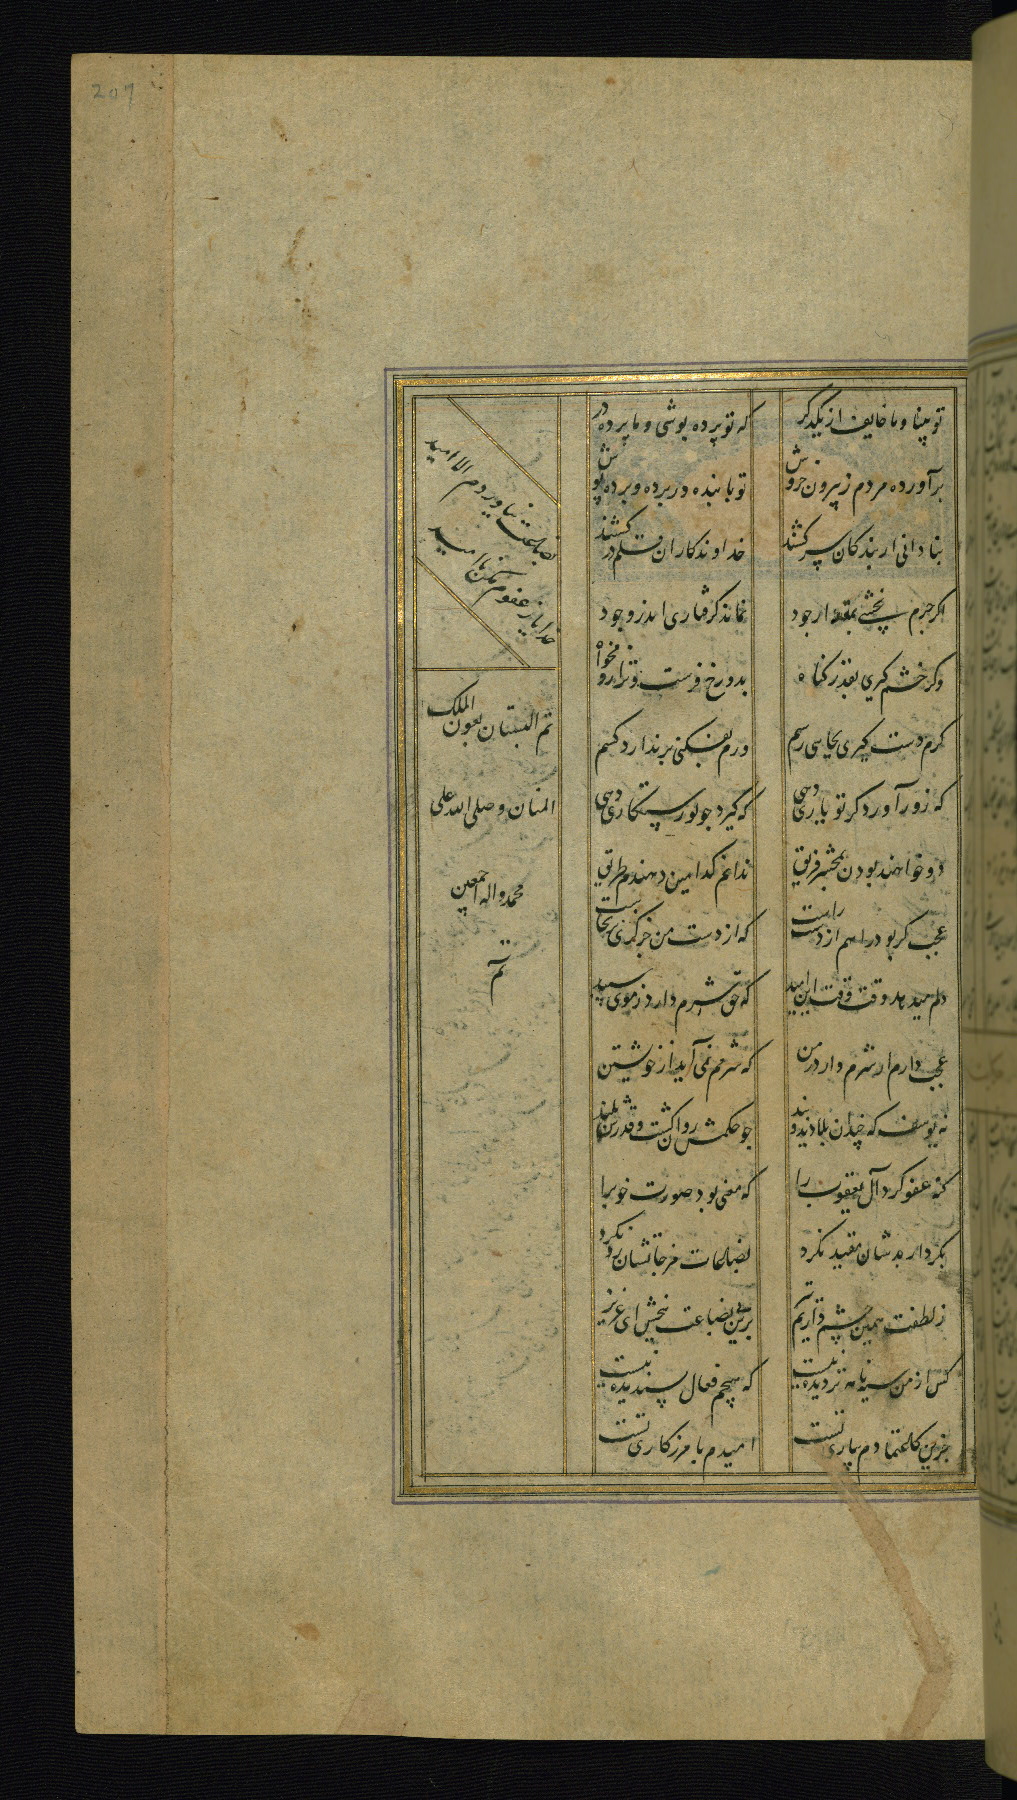 207
تو بینا و ما خایف از یکدگر
که تو پرده پوشی و ما پرده در
برآورده مردم ز بیرون خروش
تو با بنده در پرده و پرده پوش
بنادانی ار بندکان سر کشند
خداوندکاران قلم در کشند
اکر جرم بخشی بمقدار جود
نماند کرفتاری اندر وجود
وکر خشم کیری بقدر کناه
بدوزخ فرست و ترازو مخواه
کرم دست کیری بجایی رسم
ورم بفکنی بر ندارد کسم
که زور آورد کر تو یاری دهی
که کیرد جو تو رستکاری دهی
دو خواهند بودن بمحشر فریق
ندانم کدامین دهندم طریق
عجب کر بود راهم از دست راست
که از دست من جز کژی بر نخاست
دلم میدهد وقت وقت این امید
که حق شرم دارد ز موی سپید
عجب دارم ار شرم دارد ز من
که شرمم نمی آید از خویشتن
نه یوسف که جندان بلا دید و بند
جو حکمش روان کشت و قدرش بلند
کنه عفو کرد آل یعقوب را
که معنی بود صورت خوب را
بکردار بدشان مقید نکرد
بضاعات مزجاتشان رد نکرد
ز لطفت همین چشم داریم نیز
برین بی بضاعت ببخش ای عزیز
کس از من سیه نامه تر دیده نیست
که هیچم فعال پسندیده نیست
جزین کاعتمادم بیاری تست
امیدم بآمرزکاری تست
بضاعت نیاوردم الا امید
خدایا ز عفوم مکن ناامید
تم البستان بعون الملک
المنان وصلی الله علی
محمد واله اجمعین
تم